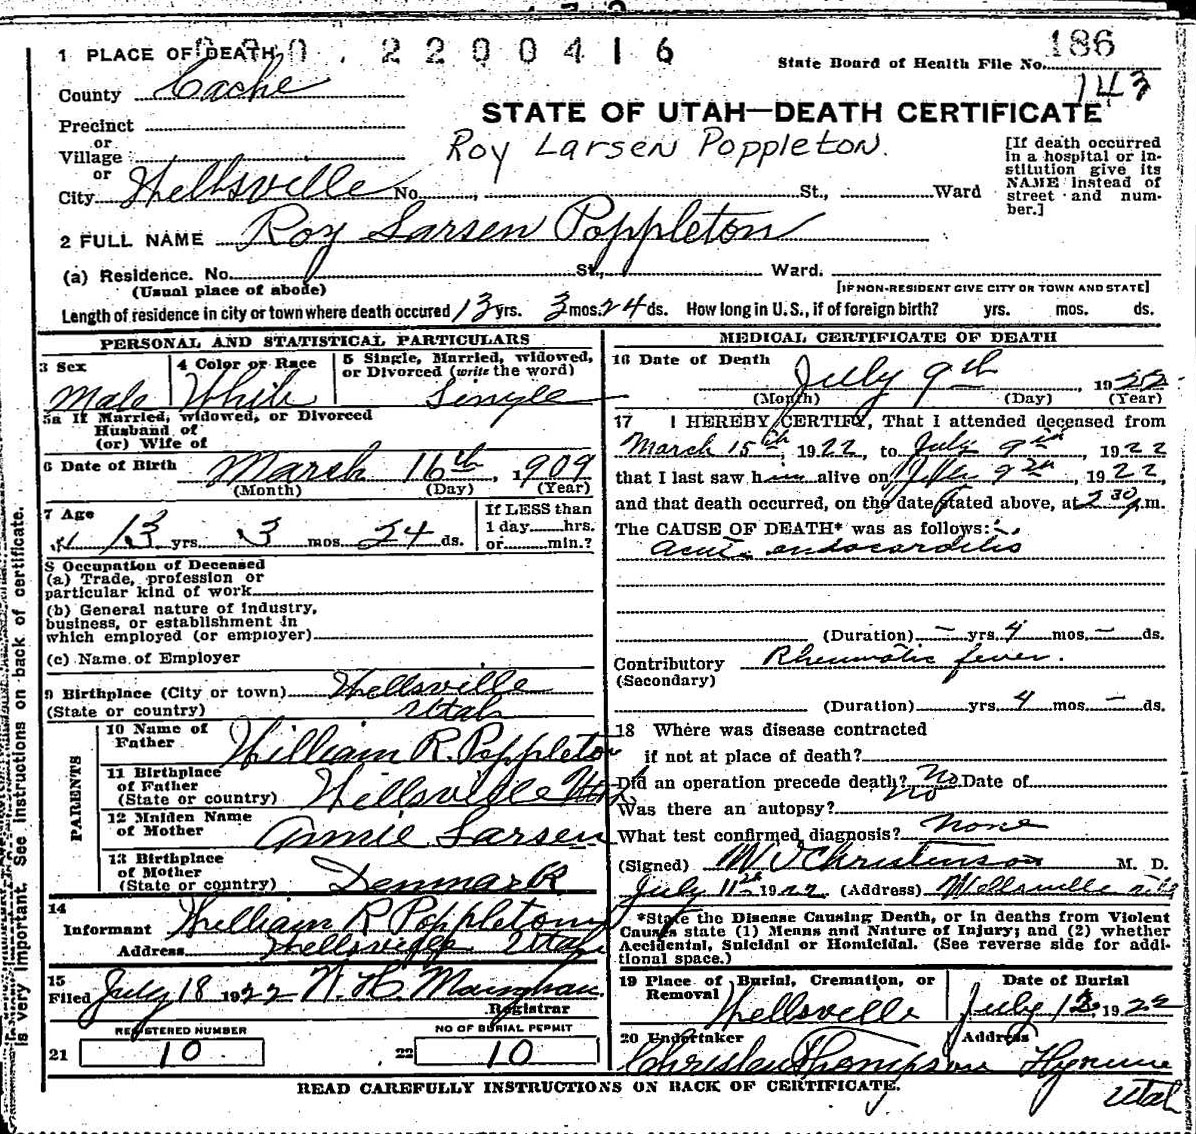 2200416
1 PLACE OF DEATH
State Board of Health File No. 186
143
County Cache
STATE OF UTAH—DEATH CERTIFICATE
Precinct
or
Village
Roy Larsen Poppleton.
[If death occurred in a hospital or institution give its NAME instead of street and number.]
or
City Wellsville No. , St., Ward
2 FULL NAME Roy Larsen Poppleton
(a) Residence. No. St., Ward.
(Usual place of abode) [IF NON-RESIDENT GIVE CITY OR TOWN AND STATE]
Length of residence in city or town where death occured 13 yrs. 3 mos. 24 ds. How long in U. S., if of foreign birth? yrs. mos. ds.
PERSONAL AND STATISTICAL PARTICULARS
3 Sex
Male
4 Color or Race
White
5 Single, Married, widowed, or Divorced (write the word)
Single
5a If Married, widowed, or Divorced
Husband of
(or) Wife of
6 Date of Birth March 16th, 1909
(Month) (Day) (Year)
7 Age
13 yrs. 3 mos. 24 ds.
If LESS than
1 day hrs.
or min.?
8 Occupation of Deceased
(a) Trade, profession or
particular kind of work
(b) General nature of industry,
business, or establishment in
which employed (or employer)
(c) Name of Employer
9 Birthplace (City or town) Wellsville
(State or country) Utah
PARENTS
10 Name of Father William R. Poppleton
11 Birthplace of Father
(State or country) Wellsville Utah
12 Maiden Name of Mother Annie Larsen
13 Birthplace of Mother
(State or country) Denmark
14
Informant William R Poppleton
Address Wellsville Utah
15
Filed July 18 1922
Registrar
REGISTERED NUMBER
21 10
NO OF BURIAL PERMIT
22 10
MEDICAL CERTIFICATE OF DEATH
16 Date of Death July 9th, 1922
(Month) (Day) (Year)
17 I HEREBY CERTIFY, That I attended deceased from
March 15th, 1922, to July 9th, 1922
that I last saw him alive on July 9th, 1922,
and that death occurred, on the date stated above, at 2 30 p.m.
The CAUSE OF DEATH* was as follows:
Acute endocarditis
(Duration) – yrs. 4 mos. – ds.
Contributory Rheumatic fever.
(Secondary)
(Duration) yrs. 4 mos. – ds.
18 Where was disease contracted
if not at place of death?
Did an operation precede death? No Date of
Was there an autopsy? No
What test confirmed diagnosis? None
(Signed) Christenson M. D.
July 11th 1922 (Address) Wellsville
*State the Disease Causing Death, or in deaths from Violent
Causes state (1) Means and Nature of Injury; and (2) whether
Accidental, Suicidal or Homicidal. (See reverse side for additional space.)
19 Place of Burial, Cremation, or Removal
Wellsville
Date of Burial
July 1922
20 Undertaker
Address
Hyrum
Utah
READ CAREFULLY INSTRUCTIONS ON BACK OF CERTIFICATE.
is very important. See instructions on back of certificate.